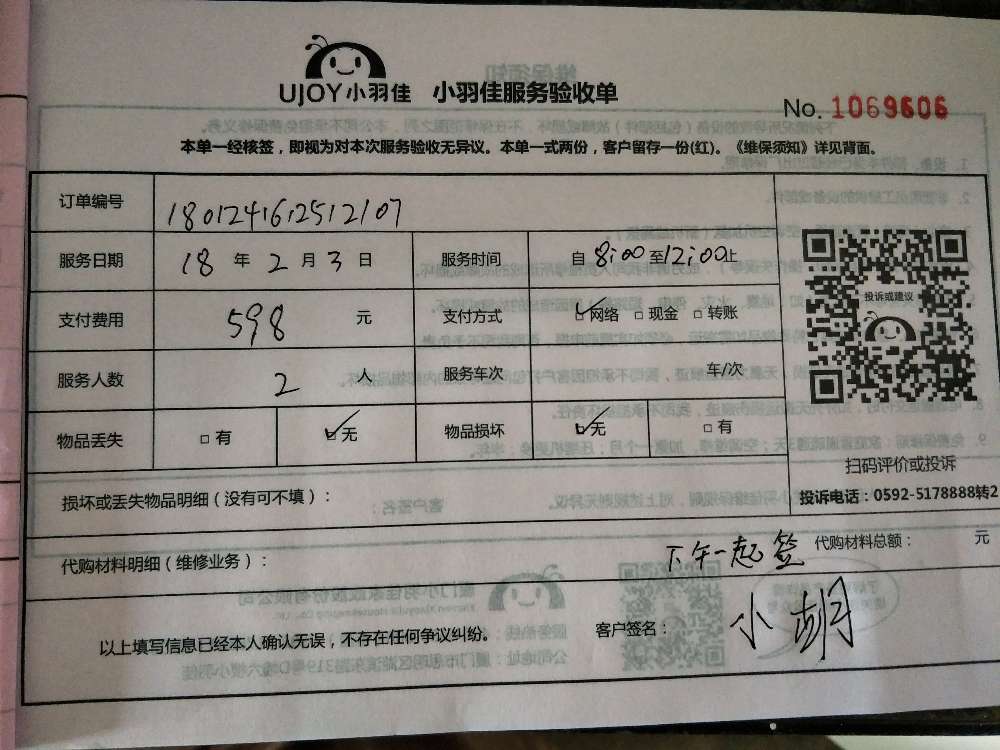 UJOY小羽佳 小羽佳服务验收单
No. 1069606
本单一经核签，即视为对本次服务验收无异议。本单一式两份，客户留存一份(红)。《维保须知》详见背面。
订单编号 1801241612512107
服务日期 18 年 2 月 3 日 服务时间 自 8:00 至 12:00 止
支付费用 598 元 支付方式 ☑网络 □现金 □转账
服务人数 2 人 服务车次 车/次
物品丢失 □有 ☑无 物品损坏 ☑无 □有
投诉或建议
扫码评价或投诉
投诉电话：0592-5178888转2
损坏或丢失物品明细（没有可不填）：
代购材料明细（维修业务）： 下午一起签 代购材料总额： 元
以上填写信息已经本人确认无误，不存在任何争议纠纷。 客户签名： 小胡